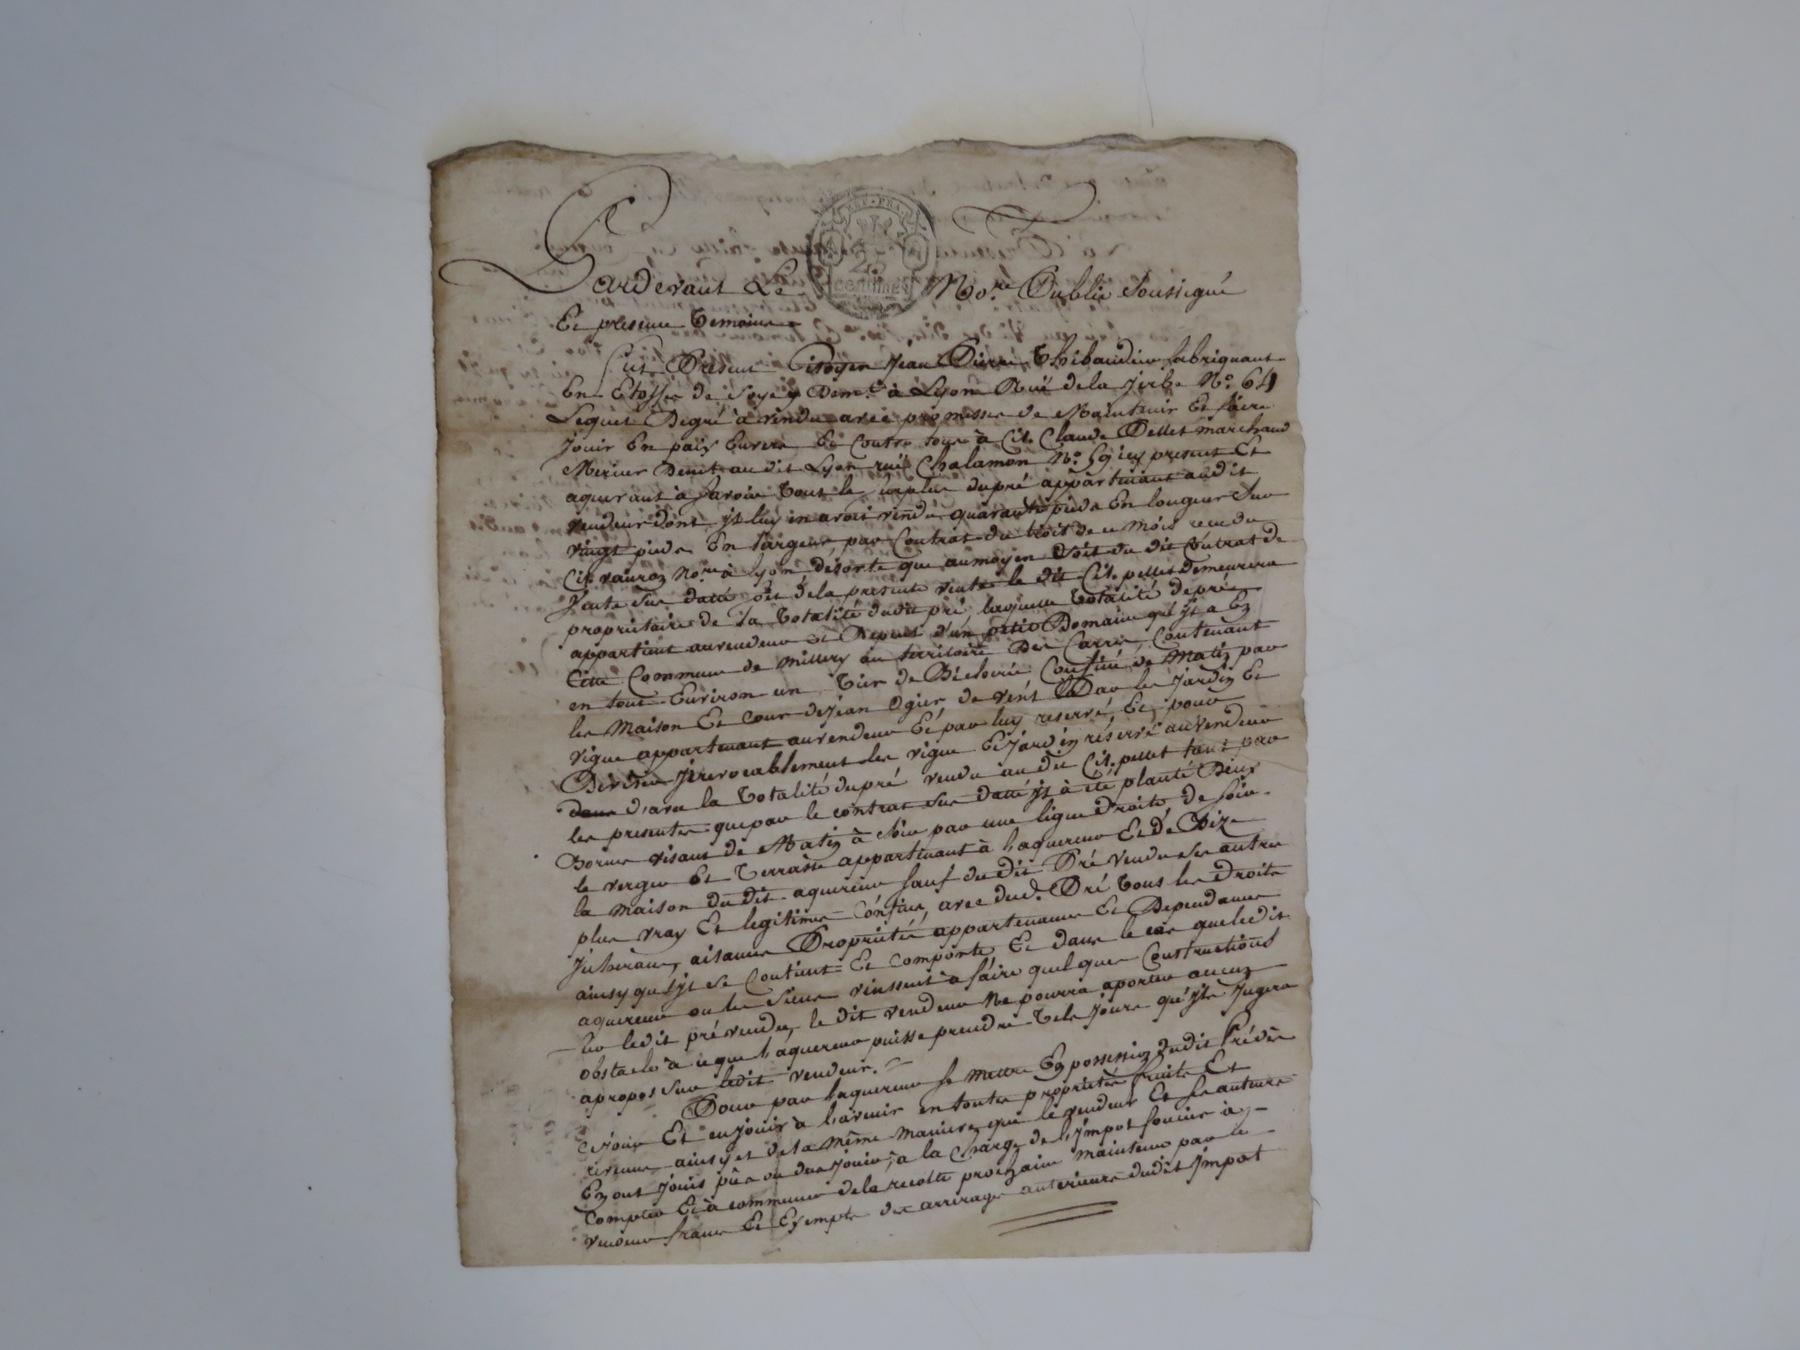 REP. FRA.
25
centimes
Pardevant Le No.re Public Soussigné
Et presence Temoins
fut Present Citoyen Jean Pierre Thibaudier fabriquant
En Etoffes de Soyes Demt. à Lyon Ruë de la Jerbe No. 64
Lequel Degré à vendu avec promesse de Maintenir Et faire
jouir En paix Envers Et Contre tous à Cit. Claude Pellet marchand
Mercier Demt. au dit Lyon ruë Chalamon No. 59 icy present Et
aquerant à Savoir Tout le surplus du pré appartenant audit
vendeur dont il luy en avoit vendu quarante pieds En longueur Sur
vingt pieds En largeur par Contrat du huit de ce Mois recu du
Cit. No.re à Lyon desorte que aumoyen Soit du dit Contrat de
Vente Sus datté Soit de la presente vente le dit Cit. pellet Demeurera
proprietaire de la Totalité dudit pré, laquelle Totalité de pré
appartient au vendeur et Depend d'un petit Domaine qu'il a En
Cette Commune de Millery au territoire Des Carrés, Contenant
en tout Environ un Tier de Bicherée Confiné de Matin par
les Maison Et Cour de Jean Ogier, de vent Par les Jardin Et
vigne appartenant au vendeur Et par luy reservé, Et pour
Diviser Jrrevocablement les vigne Et Jardin réservé au vendeur
d'avec la Totalité du pré vendu au dit Cit. pellet tant par
les presentes que par le contrat Sus datté il à été planté Deux
Bornes visant de Matin à Soir par une ligne Droite de Soir
le verger Et Terrasse appartenant à l'aquereur Et De Bize
la Maison du dit aquereur Sauf du dit Pré vendu Ses autres
plus vray Et legitimes Confins, avec dud. Pré Tous les Droits
Jnherans, aisances Proprietés appartenances Et Dependances
ainsy qu'il Se Contient Et Comporte Et dans le cas que ledit
aquereur ou les Siens vinssent à faire quelques Constructions
Sur ledit pré vendu, le dit vendeur Ne pourra aporter aucun
obstacle à ce que l'aquereur puisse prendre Tels Jours qu'ils Jugera
apropos Sur ledit vendeur.
Pour par l'aquereur Se Mettre En possession dudit Pré dès
ce Jour Et en jouir à l'avenir en toutes proprietés fruits Et
revenus ainsy et de la Même Maniere que le vendeur Et Ses auteurs
En ont Jouis pûs ou dus Jouir, à la Charge de l'Jmpot foncier à
Compter Et à commencer de la recolte prochaine maintenu par le
vendeur franc Et Exempts des arrerages anterieurs dudit Jmpot